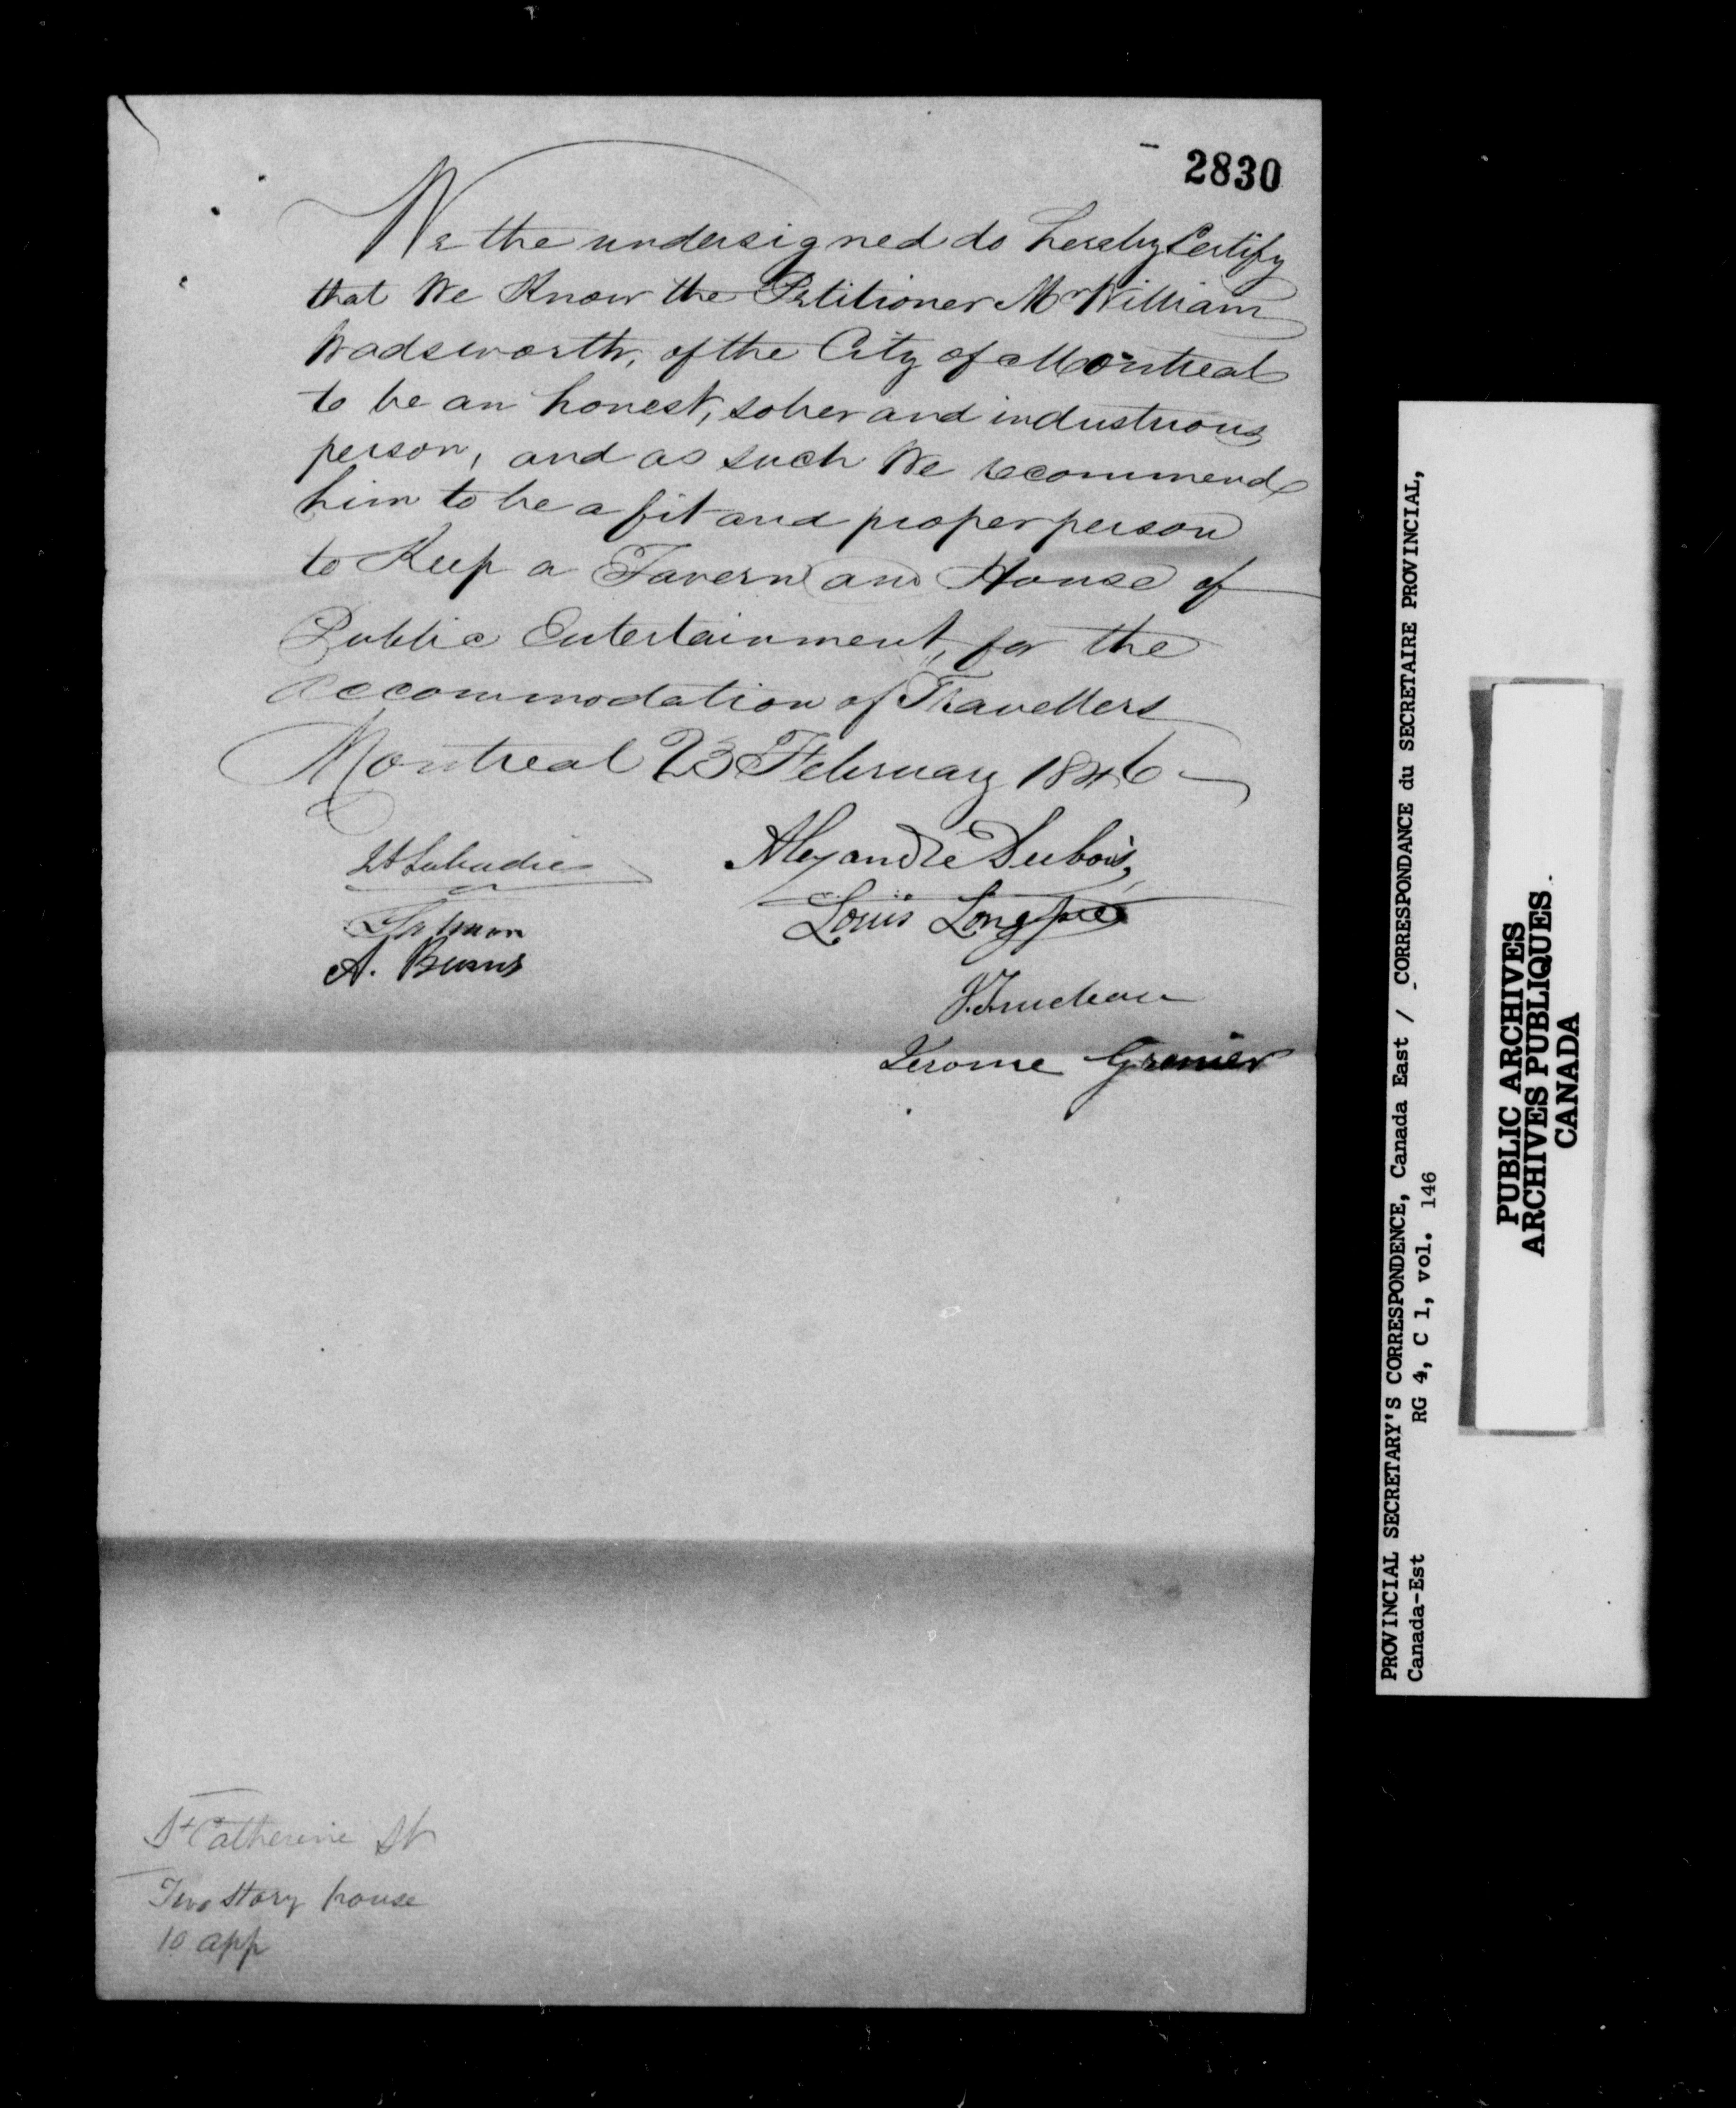 2830
We the undersigned do hereby Certify
that We Know the Petitioner Mr William
Wadsworth, of the City of Montreal
to be an honest, sober and industrious
person, and as such We recommend
him to be a fit and proper person
to Keep a Tavern and House of
Public Entertainment, for the
accommodation of Travellers
Montreal 23 February 1846
Labadie
Alexandre Dubois,
Louis Longpré
A. Burns
J. Trudeau
Jerome Grenier
St Catherine St
Two Story house
10 app
PROVINCIAL SECRETARY'S CORRESPONDENCE, Canada East / CORRESPONDANCE du SECRETAIRE PROVINCIAL,
Canada-Est RG 4, C 1, vol. 146
PUBLIC ARCHIVES
ARCHIVES PUBLIQUES
CANADA